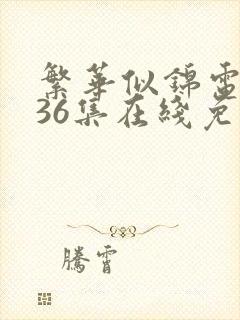 繁華似錦電
36集在綫免
騰霄